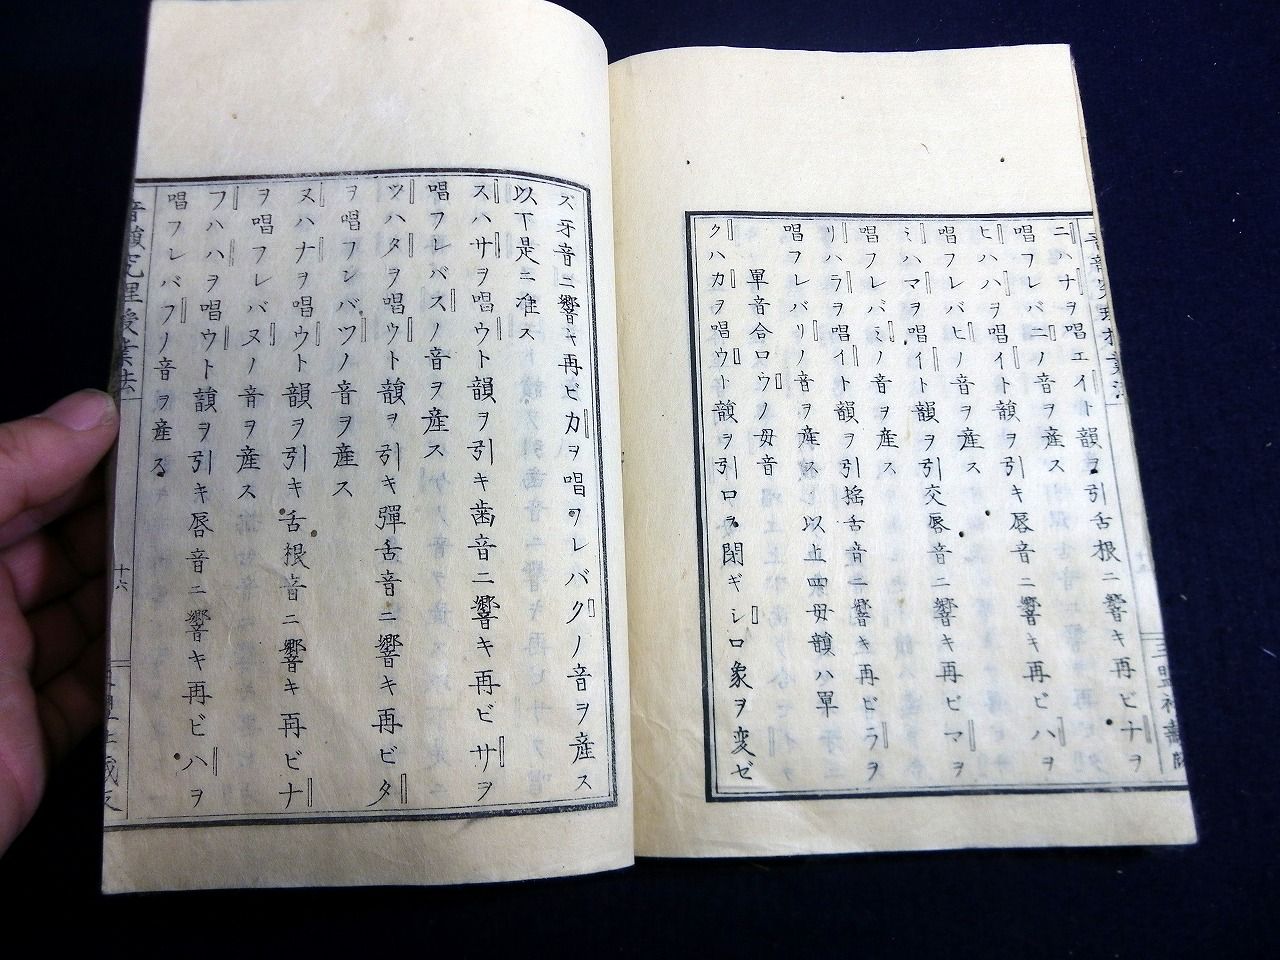 ニハナヲ唱エイト韻ヲ引舌根ニ響キ再ビナヲ
唱フレバニノ音ヲ産ス
ヒハハヲ唱イト韻ヲ引キ唇音ニ響キ再ビハヲ
唱フレバヒノ音ヲ産ス
ミハマヲ唱イト韻ヲ引交唇音ニ響キ再ビマヲ
唱フレバミノ音ヲ産ス
リハラヲ唱イト韻ヲ引搖舌音ニ響キ再ビラヲ
唱フレバリノ音ヲ産ス以上四母韻ハ單
單音合ロウノ母音
クハカヲ唱ウト韻ヲ引ロヲ閉ギシロ象ヲ変ゼ
ズ牙音ニ響キ再ビカヲ唱フレバクノ音ヲ産ス
以下是ニ准ス
スハサヲ唱ウト韻ヲ引キ歯音ニ響キ再ビサヲ
唱フレバスノ音ヲ産ス
ツハタヲ唱ウト韻ヲ引キ彈舌音ニ響キ再ビタ
ヲ唱フレバツノ音ヲ産ス
ヌハナヲ唱ウト韻ヲ引キ舌根音ニ響キ再ビナ
ヲ唱フレバヌノ音ヲ産ス
フハハヲ唱ウト韻ヲ引キ唇音ニ響キ再ビハヲ
唱フレバフノ音ヲ産ス
音韻究理授業法
十六